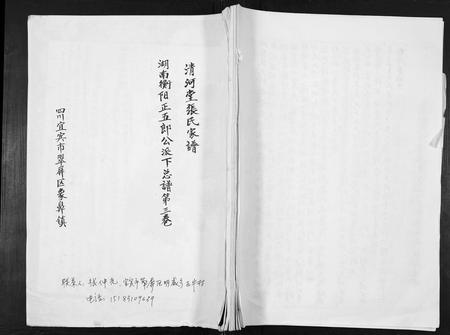 清河堂張氏家譜
湖南衡阳正五郎公派下总譜第三卷
四川宜宾市翠屏区象鼻镇
联系人：张仲先，宜宾市翠屏区明威乡
电话：15183109689